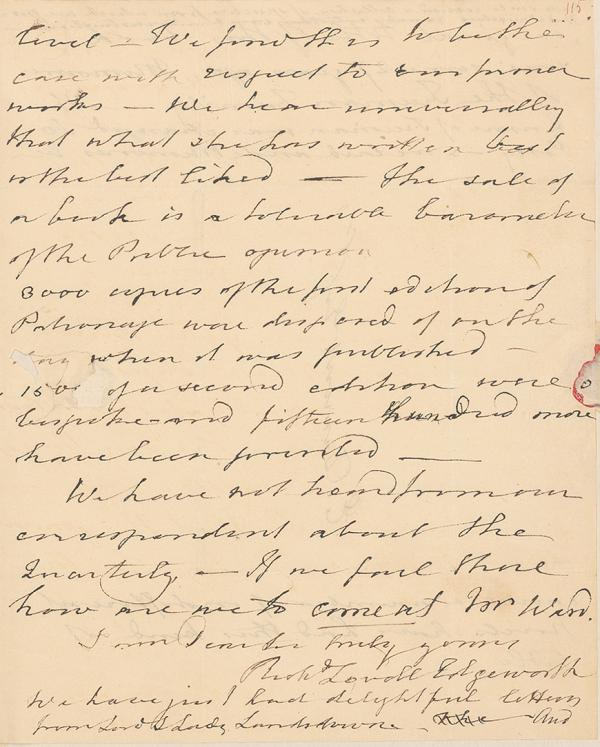 115
level – We find this to be the
case with respect to our former
works – We hear universally
that what she has written best
is the best liked — The sale of
a book is a tolerable barometer
of the Public opinion
3000 copies of the first edition of
Patronage were disposed of on the
day when it was published –
1500 of a second edition were
bespoke – and fifteen hundred more
have been printed —
We have not heard from our
correspondent about the
Quarterly, – If we fail there
how are we to come at Mr Ward.
I am Dear Sir truly yours
Richd Lovell Edgeworth
We have just had delightful letters
from Lord & Lady Landsdowne. And